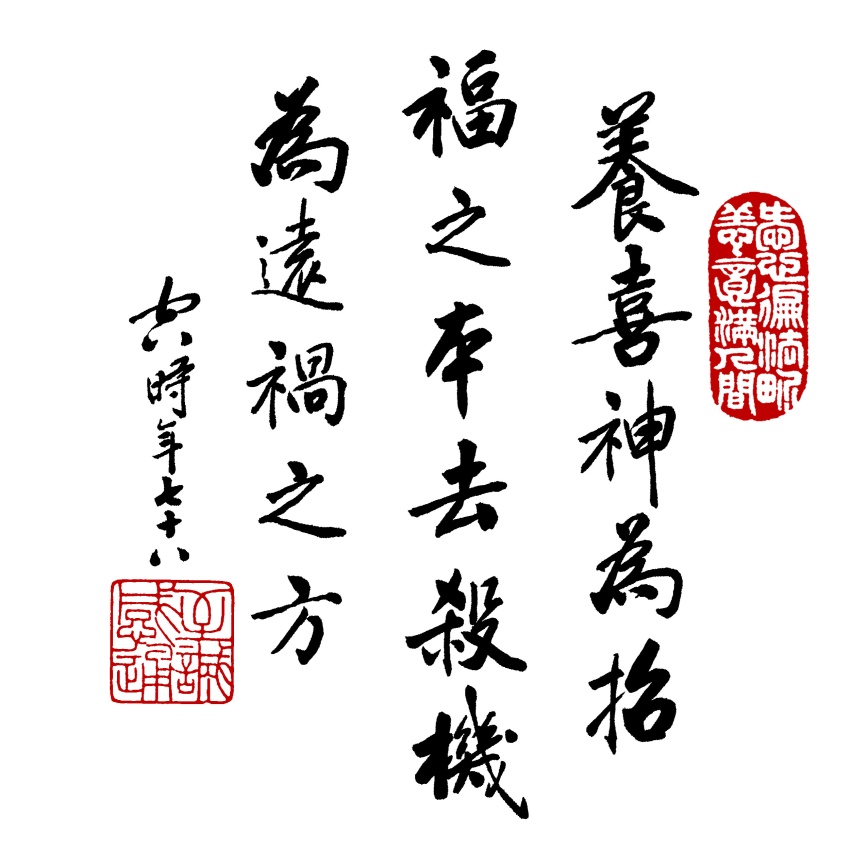 善意滿人間
養喜神為招
福之本去殺機
為遠禍之方
時年七十八